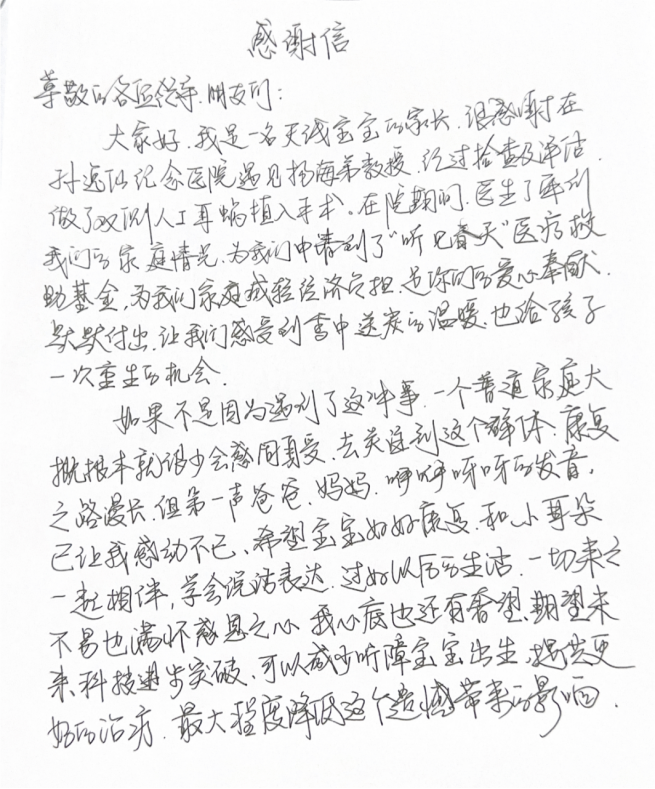 感谢信
尊敬的各位领导、朋友们：
大家好，我是一名天线宝宝的家长，很感谢在
孙逸仙纪念医院遇见杨海弟教授，经过检查及评估，
做了双侧人工耳蜗植入手术。在院期间，医生了解到
我们的家庭情况，为我们申请到了“听见春天”医疗救
助基金，为我们家庭减轻经济负担，是你们的爱心奉献、
默默付出，让我们感受到雪中送炭的温暖，也给孩子
一次重生的机会。
如果不是因为遇到了这件事，一个普通家庭大
概根本就很少会感同身受，去关注到这个群体，康复
之路漫长，但第一声爸爸、妈妈，咿咿呀呀的发音，
已让我感动不已，希望宝宝好好康复，和小耳朵
一起相伴，学会说话表达，过好以后的生活，一切来之
不易也满怀感恩之心，我心底也还有奢望，期望未
来科技进步突破，可以减少听障宝宝出生，提供更
好的治疗，最大程度降低这个遗憾带来的影响。